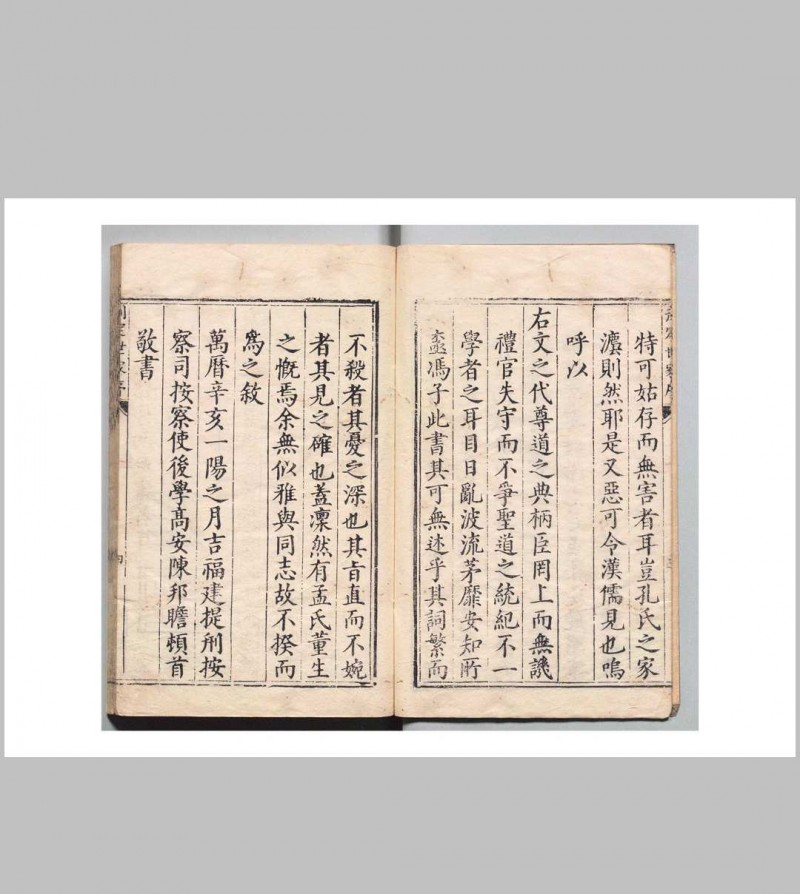 特可姑存而無害者耳豈孔氏之家
瀍則然耶是又惡可令漢儒見也嗚
呼以
右文之代尊道之典柄臣罔上而無譏
禮官失守而不爭聖道之統紀不一
學者之耳目日亂波流茅靡安知所
厎馮子此書其可無述乎其詞繁而
不殺者其憂之深也其旨直而不婉
者其見之確也蓋凜然有孟氏董生
之慨焉余無似雅與同志故不揆而
為之敘
萬曆辛亥一陽之月吉福建提刑按
察司按察使後學高安陳邦瞻頓首
敬書